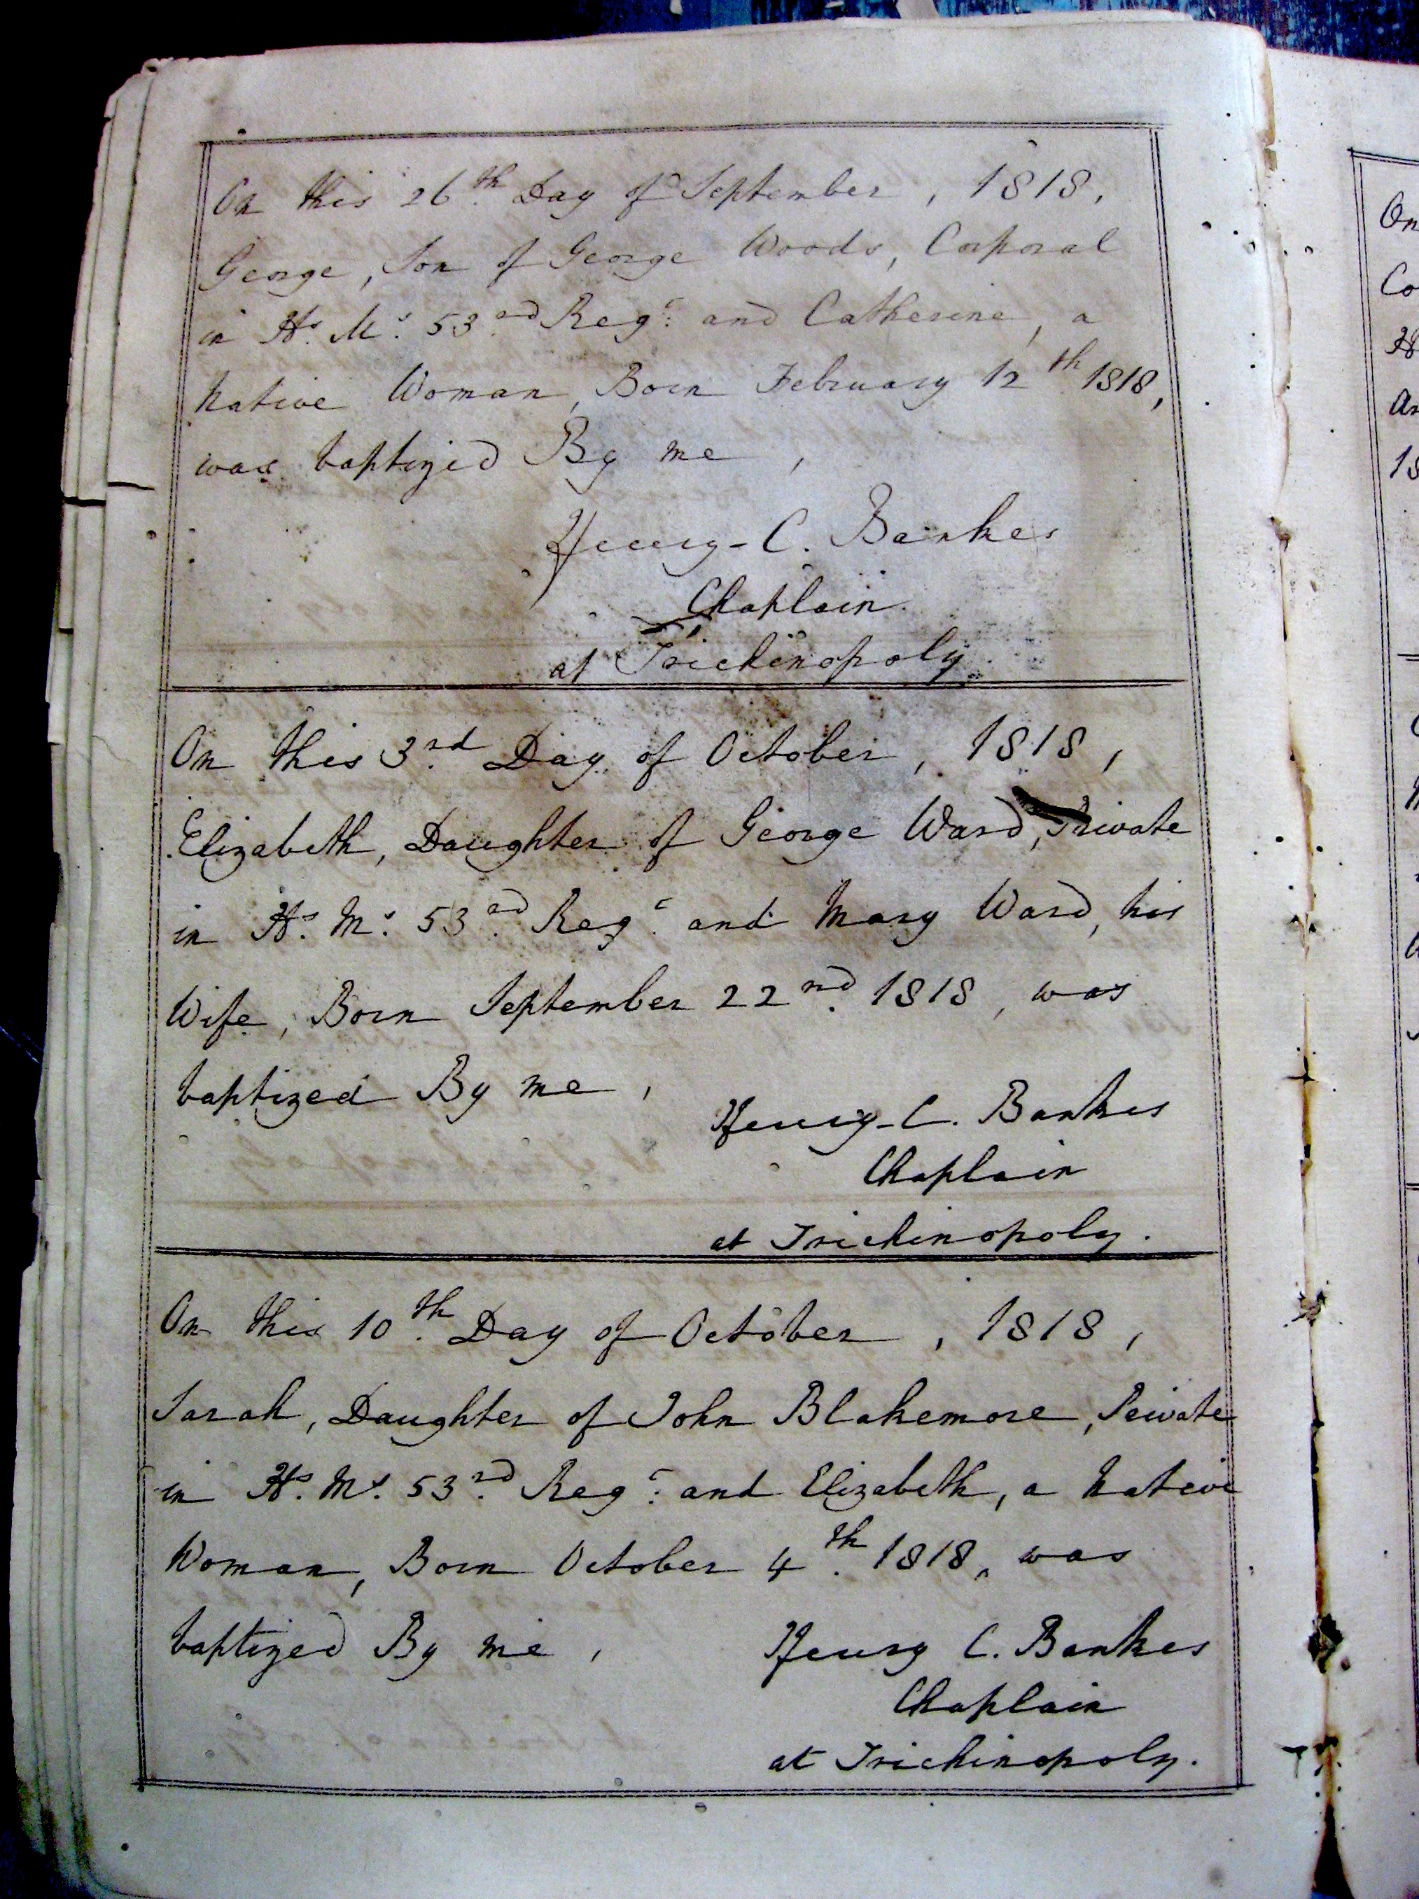 On this 26th Day of September, 1818,
George, Son of George Woods, Corporal
in Hs. Ms. 53rd Regt. and Catherine, a
Native Woman, Born February 12th 1818,
was baptized By me,
Henry C. Bankes
Chaplain
at Trichinopoly
On this 3rd Day of October, 1818,
Elizabeth, Daughter of George Ward, Private
in Hs. Ms. 53rd Regt. and Mary Ward, his
Wife, Born September 22nd 1818, was
baptized By me,
Henry C. Bankes
Chaplain
at Trichinopoly.
On this 10th Day of October, 1818,
Sarah, Daughter of John Blakemore, Private
in Hs. Ms. 53rd Regt. and Elizabeth, a Native
Woman, Born October 4th 1818, was
baptized By me,
Henry C. Bankes
Chaplain
at Trichinopoly.
On
Co